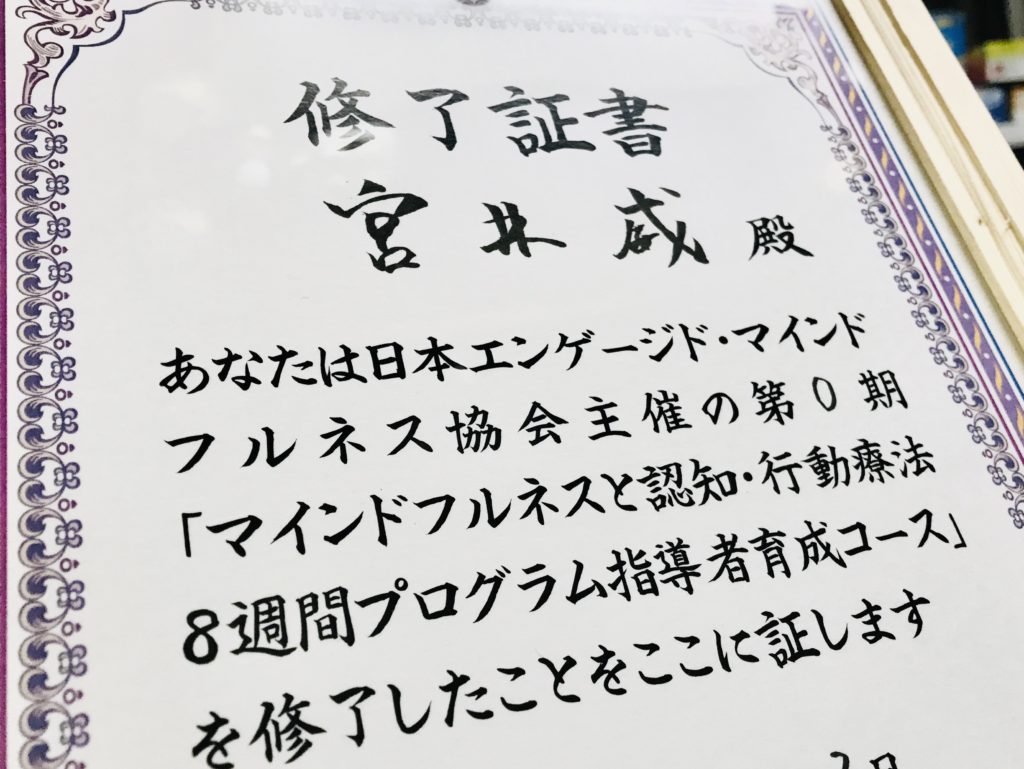 修了証書
宮井 威 殿
あなたは日本エンゲージド・マインド
フルネス協会主催の第0期
「マインドフルネスと認知・行動療法
8週間プログラム指導者育成コース」
を修了したことをここに証します